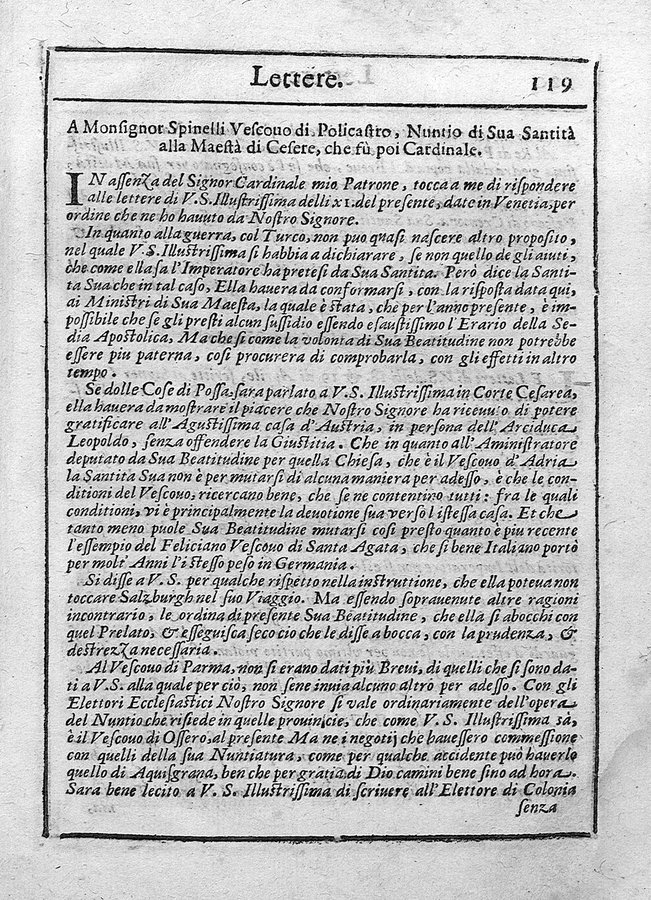 Lettere. 119
A Monsignor Spinelli Vescouo di Policastro, Nuntio di Sua Santità
alla Maestà di Cesere, che fù poi Cardinale.
IN assenza del Signor Cardinale mio Patrone, tocca a me di rispondere
alle lettere di V. S. Illustrissima delli xi. del presente, date in Venetia, per
ordine che ne ho hauuto da Nostro Signore.
In quanto alla guerra, col Turco, non puo quasi nascere altro proposito,
nel quale V. S. Illustrissima si habbia a dichiarare, se non quello de gli aiuti,
che come ella sa l'Imperatore ha pretesi da Sua Santita. Però dice la Santi-
ta Sua che in tal caso, Ella hauera da conformarsi, con la risposta data qui,
ai Ministri di Sua Maesta, la quale è stata, che per l'anno presente, è im-
possibile che se gli presti alcun sussidio essendo esaustissimo l'Erario della Se-
dia Apostolica, Ma che si come la volonta di Sua Beatitudine non potrebbe
essere piu paterna, cosi procurera di comprobarla, con gli effetti in altro
tempo.
Se dolle Cose di Possa, sara parlato a V. S. Illustrissima in Corte Cesarea,
ella hauera da mostrare il piacere che Nostro Signore ha riceuuto di potere
gratificare all'Agustissima casa d'Austria, in persona dell'Arciduca
Leopoldo, senza offendere la Giustitia. Che in quanto all'Aministratore
deputato da Sua Beatitudine per quella Chiesa, che è il Vescouo d'Adria
la Santita Sua non è per mutarsi di alcuna maniera per adesso, è che le con-
ditioni del Vescouo, ricercano bene, che se ne contentino tutti: fra le quali
conditioni, vi è principalmente la deuotione sua verso l'istessa casa. Et che
tanto meno puole Sua Beatitudine mutarsi cosi presto quanto è piu recente
l'essempio del Feliciano Vescouo di Santa Agata, che si bene Italiano portò
per molt'Anni l'istesso peso in Germania.
Si disse a V. S. per qualche rispetto nella instruttione, che ella poteua non
toccare Salzburgh nel suo Viaggio. Ma essendo soprauenute altre ragioni
incontrario, le ordina di presente Sua Beatitudine, che ella si abocchi con
quel Prelato, & esseguisca seco cio che le disse a bocca, con la prudenza, &
destrezza necessaria.
Al Vescouo di Parma, non si erano dati più Breui, di quelli che si sono da-
ti a V. S. alla quale per ciò, non sene inuia alcuno altro per adesso. Con gli
Elettori Ecclesiastici Nostro Signore si vale ordinariamente dell'opera
del Nuntio che risiede in quelle prouincie, che come V. S. Illustrissima sà,
è il Vescouo di Ossero, al presente Ma ne i negotij che hauessero commessione
con quelli della sua Nuntiatura, come per qualche accidente può hauerlo
quello di Aquisgrana, ben che per gratia di Dio camini bene sino ad hora.
Sara bene lecito a V. S. Illustrissima di scriuere all'Elettore di Colonia
senza